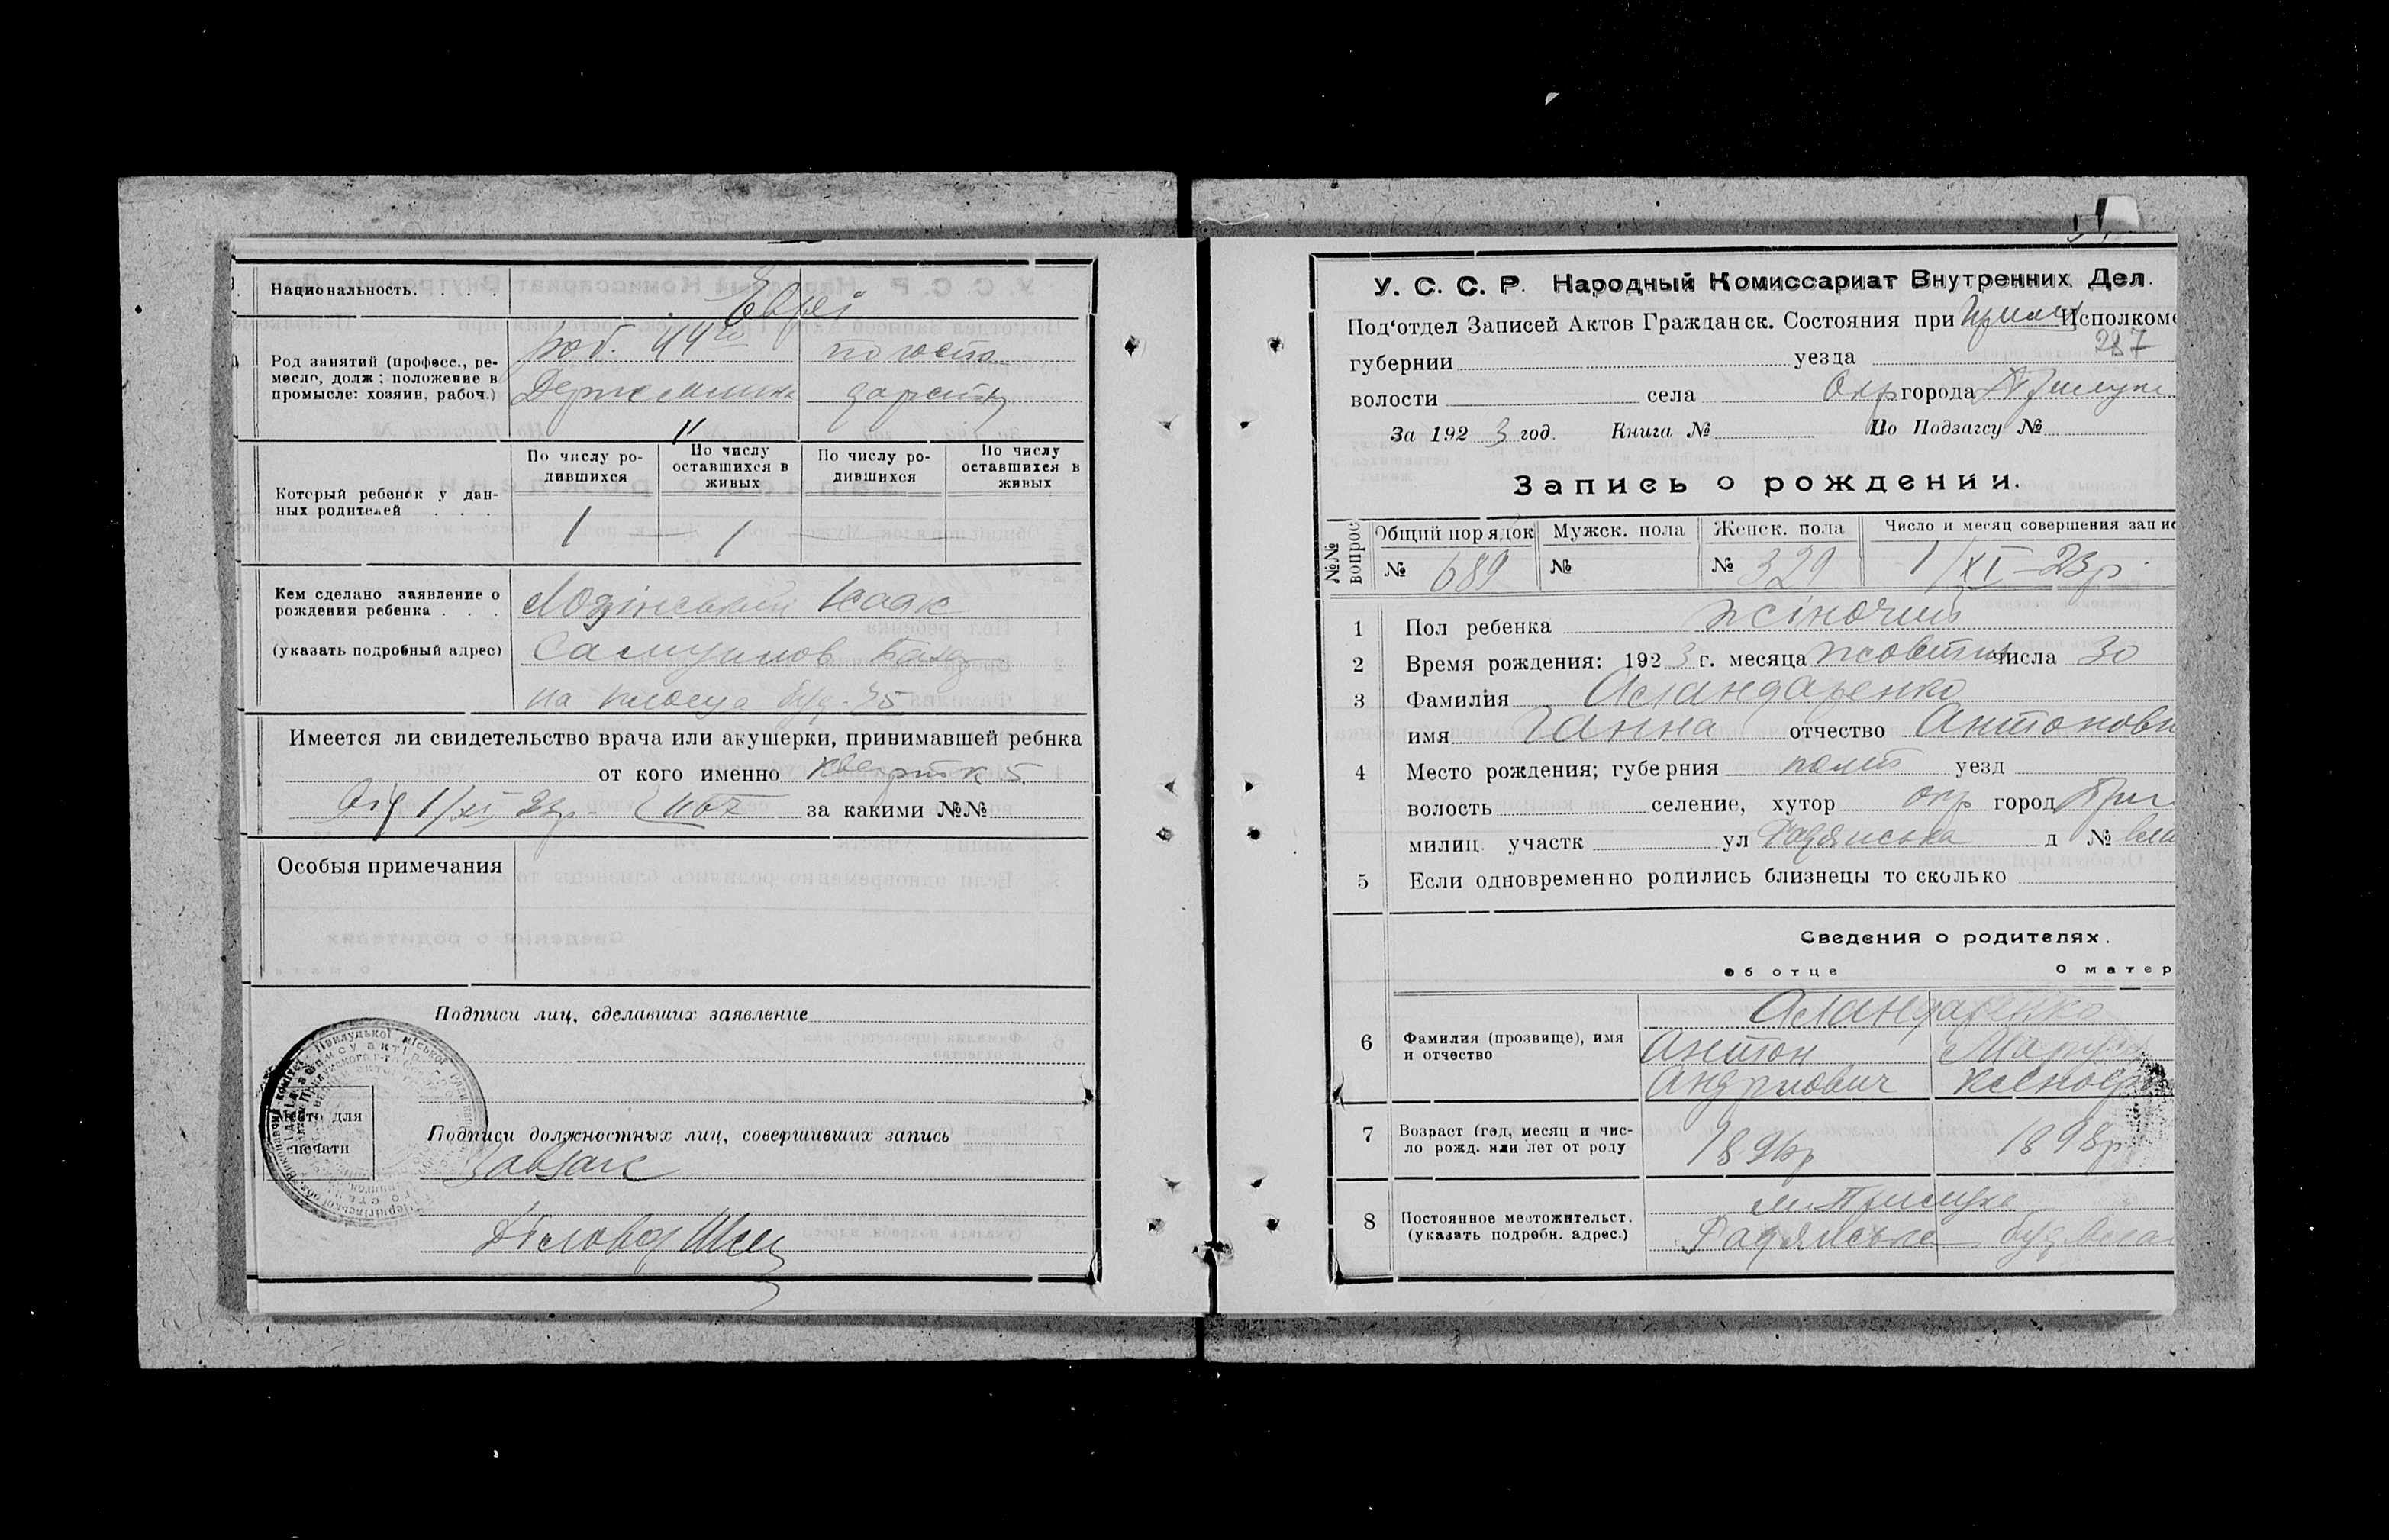 Национальность. . . .
Євреї
Род занятий (професс., ре-
месло, долж; положение в
промысле: хозяин, рабоч.)
роб. 44го
по госпо
дарству
Который ребенок у дан-
ных родителей . . .
По числу ро-
дившихся
По числу
оставшихся в
живых
По числу ро-
дившихся
По числу
оставшихся в
живых
1 1
Кем сделано заявление о
рождении ребенка . . .
(указать подробный адрес)
Лозінський Ісаак
на площа буд. 35
Имеется ли свидетельство врача или акушерки, принимавшей ребнка
от кого именно
від 1/XI 23р. за какими №№
Особыя примечания
Подписи лиц, сделавших заявление
Место для
печати
Подписи должностных лиц, совершивших запись
Завзагс
Діловод
У. С. С. Р. Народный Комиссариат Внутренних Дел.
Под'отдел Записей Актов Гражданск. Состояния при Прилук Исполкоме
287
губернии уезда
волости села Окр города Прилуки
За 1923 год. Книга № По Подзагсу №
Запись о рождении.
№№ вопрос
Общий порядок Мужск. пола Женск. пола Число и месяц совершения запис
№ 689 № № 329 1/XI-23р.
1 Пол ребенка жіночий
2 Время рождения: 1923 г. месяца жовтня числа 30
3 Фамилия Асландаренко
имя Ганна отчество Антоновн
4 Место рождения; губерния полт уезд
волость селение, хутор окр город При
милиц. участк ул Радянська д № вла
5 Если одновременно родились близнецы то сколько
Сведения о родителях.
об отце О матер
6 Фамилия (прозвище), имя
и отчество
Асландаренко
Антон Мария
Андриович
7 Возраст (год, месяц и чис-
ло рожд. или лет от роду
1896р 1898р
8 Постоянное местожительст.
(указать подробн. адрес.)
м. Прилуке
Радянська буд. влас